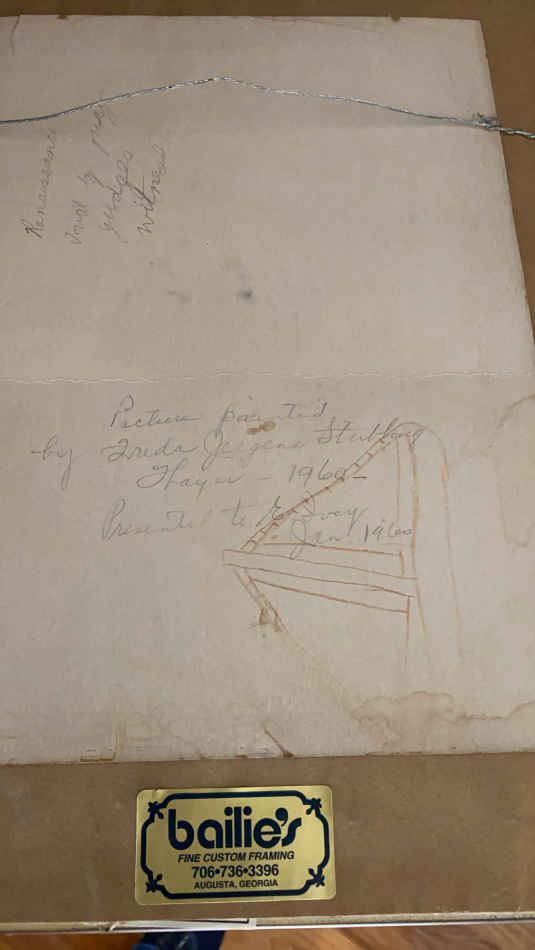 Renaissance
by
judges
witness
Picture painted
by Freda Jergens Stubbing
Thayer - 1960 -
Presented to E. Ivey
Jan 1960
bailie's
FINE CUSTOM FRAMING
706•736•3396
AUGUSTA, GEORGIA